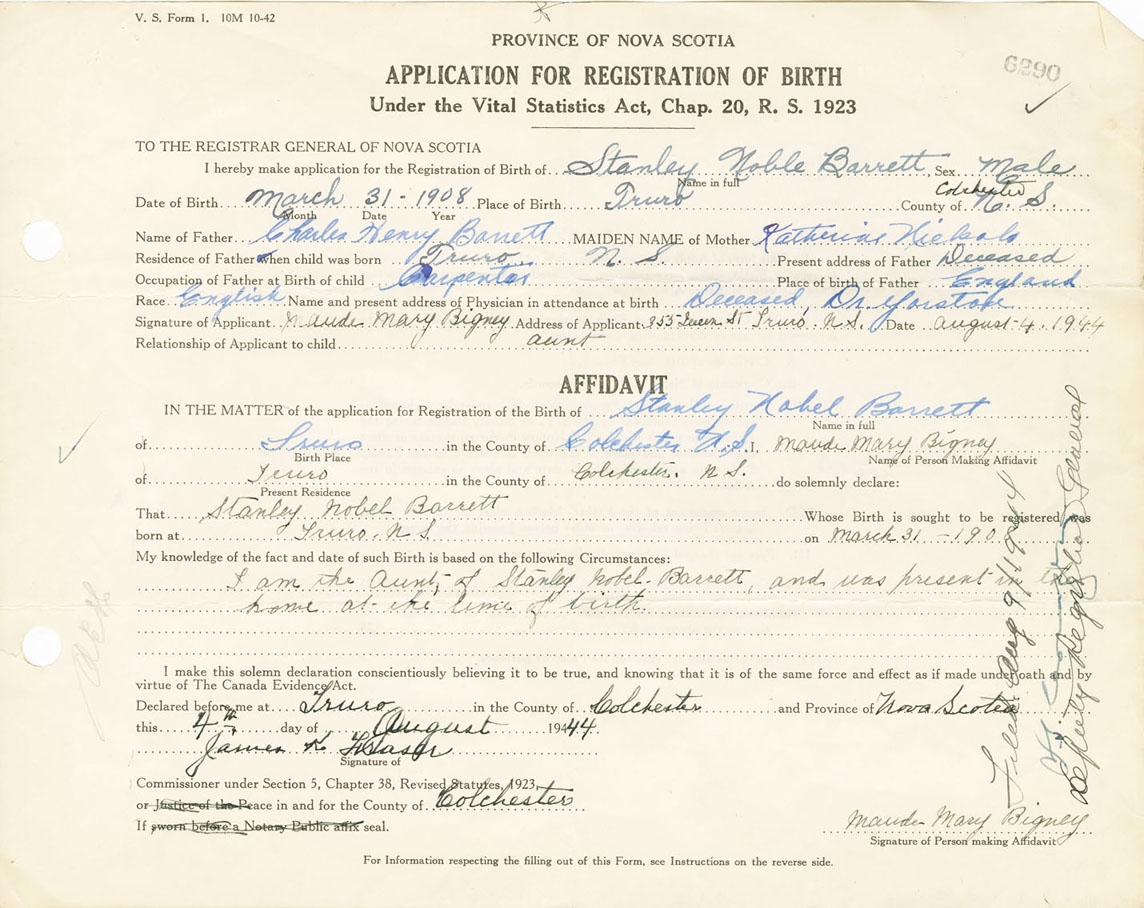 V. S. Form 1. 10M 10-42
PROVINCE OF NOVA SCOTIA
6290
APPLICATION FOR REGISTRATION OF BIRTH
Under the Vital Statistics Act, Chap. 20, R. S. 1923
TO THE REGISTRAR GENERAL OF NOVA SCOTIA
I hereby make application for the Registration of Birth of Stanley Noble Barrett Sex Male
Name in full
Colchester
Date of Birth March 31 - 1908 Place of Birth Truro County of N. S.
Month Date Year
Name of Father Charles Henry Barrett MAIDEN NAME of Mother Katherine Nickols
Residence of Father when child was born Truro N. S. Present address of Father Deceased
Occupation of Father at Birth of child Carpenter Place of birth of Father England
Race English Name and present address of Physician in attendance at birth Deceased, Dr. Yorston
Signature of Applicant Maude Mary Bigney Address of Applicant 355 Queen St Truro, N.S. Date August 4, 1944
Relationship of Applicant to child aunt
AFFIDAVIT
IN THE MATTER of the application for Registration of the Birth of Stanley Nobel Barrett
Name in full
of Truro in the County of Colchester N.S. I, Maude Mary Bigney
Birth Place Name of Person Making Affidavit
of Truro in the County of Colchester. N S. do solemnly declare:
Present Residence
That Stanley Nobel Barrett Whose Birth is sought to be registered was
born at Truro. N S. on March 31 - 190
My knowledge of the fact and date of such Birth is based on the following Circumstances:
I am the Aunt, of Stanley Nobel Barrett, and was present in the
home at the time of birth.
I make this solemn declaration conscientiously believing it to be true, and knowing that it is of the same force and effect as if made under oath and by
virtue of The Canada Evidence Act.
Declared before me at Truro in the County of Colchester and Province of Nova Scotia
this 4th day of August 1944
James K Fraser
Signature of
Commissioner under Section 5, Chapter 38, Revised Statutes, 1923
or Justice of the Peace in and for the County of Colchester
If sworn before a Notary Public affix seal.
Maude Mary Bigney
Signature of Person making Affidavit
For Information respecting the filling out of this Form, see Instructions on the reverse side.
Filed Aug 9/1944
Deputy Registrar General